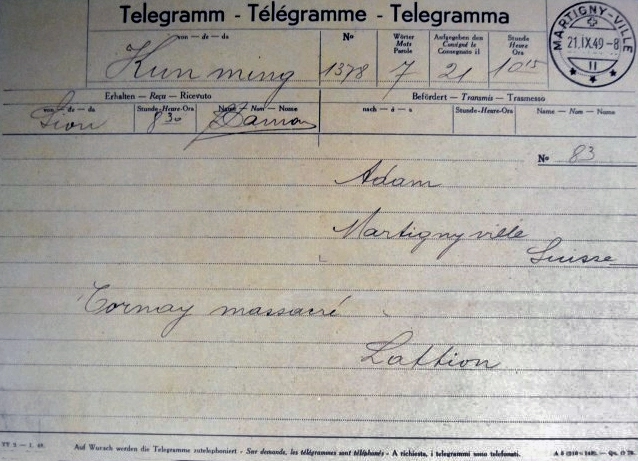 Telegramm - Télégramme - Telegramma
von — de — da
Nº
Wörter
Mots
Parole
Aufgegeben den
Consigné le
Consegnato il
Stunde
Heure
Ora
Kunming 1378 7 21 10 15
MARTIGNY-VILLE
21.IX.49-8
II
Erhalten — Reçu — Ricevuto
Befördert — Transmis — Trasmesso
von — de — da
Stunde-Heure-Ora
Name — Nom — Nome
nach — à — a
Stunde-Heure-Ora
Name — Nom — Nome
Sion 8 30
Nº 83
Adam
Martignyville
Suisse
Tornay massacré
Lattion
Auf Wunsch werden die Telegramme zutelephoniert - Sur demande, les télégrammes sont téléphonés - A richiesta, i telegrammi sono telefonati.